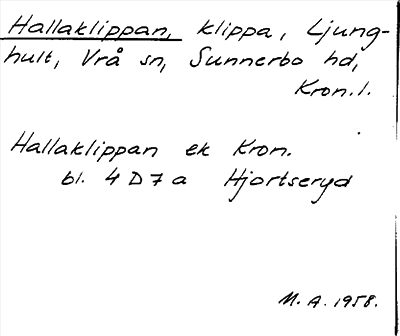 Hallaklippan, klippa, Ljung-
hult, Vrå sn, Sunnerbo hd,
Kron.l.
Hallaklippan ek Kron.
bl. 4 D 7 a Hjortseryd
M. A. 1958.